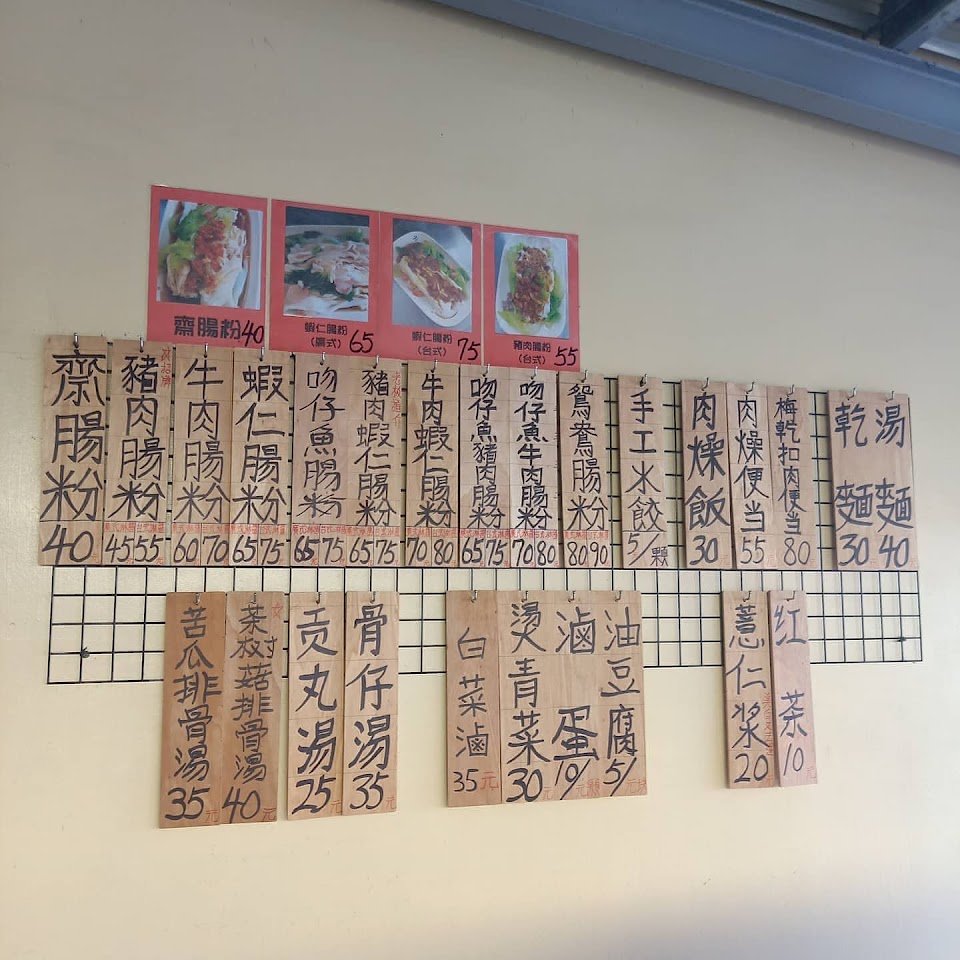 齋腸粉40
蝦仁腸粉
(廣式) 65
蝦仁腸粉
(台式) 75
豬肉腸粉
(台式) 55
齋腸粉 40元
豬肉腸粉 45 55
牛肉腸粉 60 70
蝦仁腸粉 65 75
吻仔魚腸粉 65 75
豬肉蝦仁腸粉 65 75
牛肉蝦仁腸粉 70 80
吻仔魚豬肉腸粉 65 75
吻仔魚牛肉腸粉 70 80
鴛鴦腸粉 80 90
手工水餃 5/顆
肉燥飯 30元
肉燥便当 55元
梅乾扣肉便当 80元
乾麵 30元
湯麵 40元
苦瓜排骨湯 35元
茶樹菇排骨湯 40元
贡丸湯 25元
骨仔湯 35元
白菜滷 35元
燙青菜 30元
滷蛋 10/顆
油豆腐 5/塊
薏仁漿 20元
红茶 10元